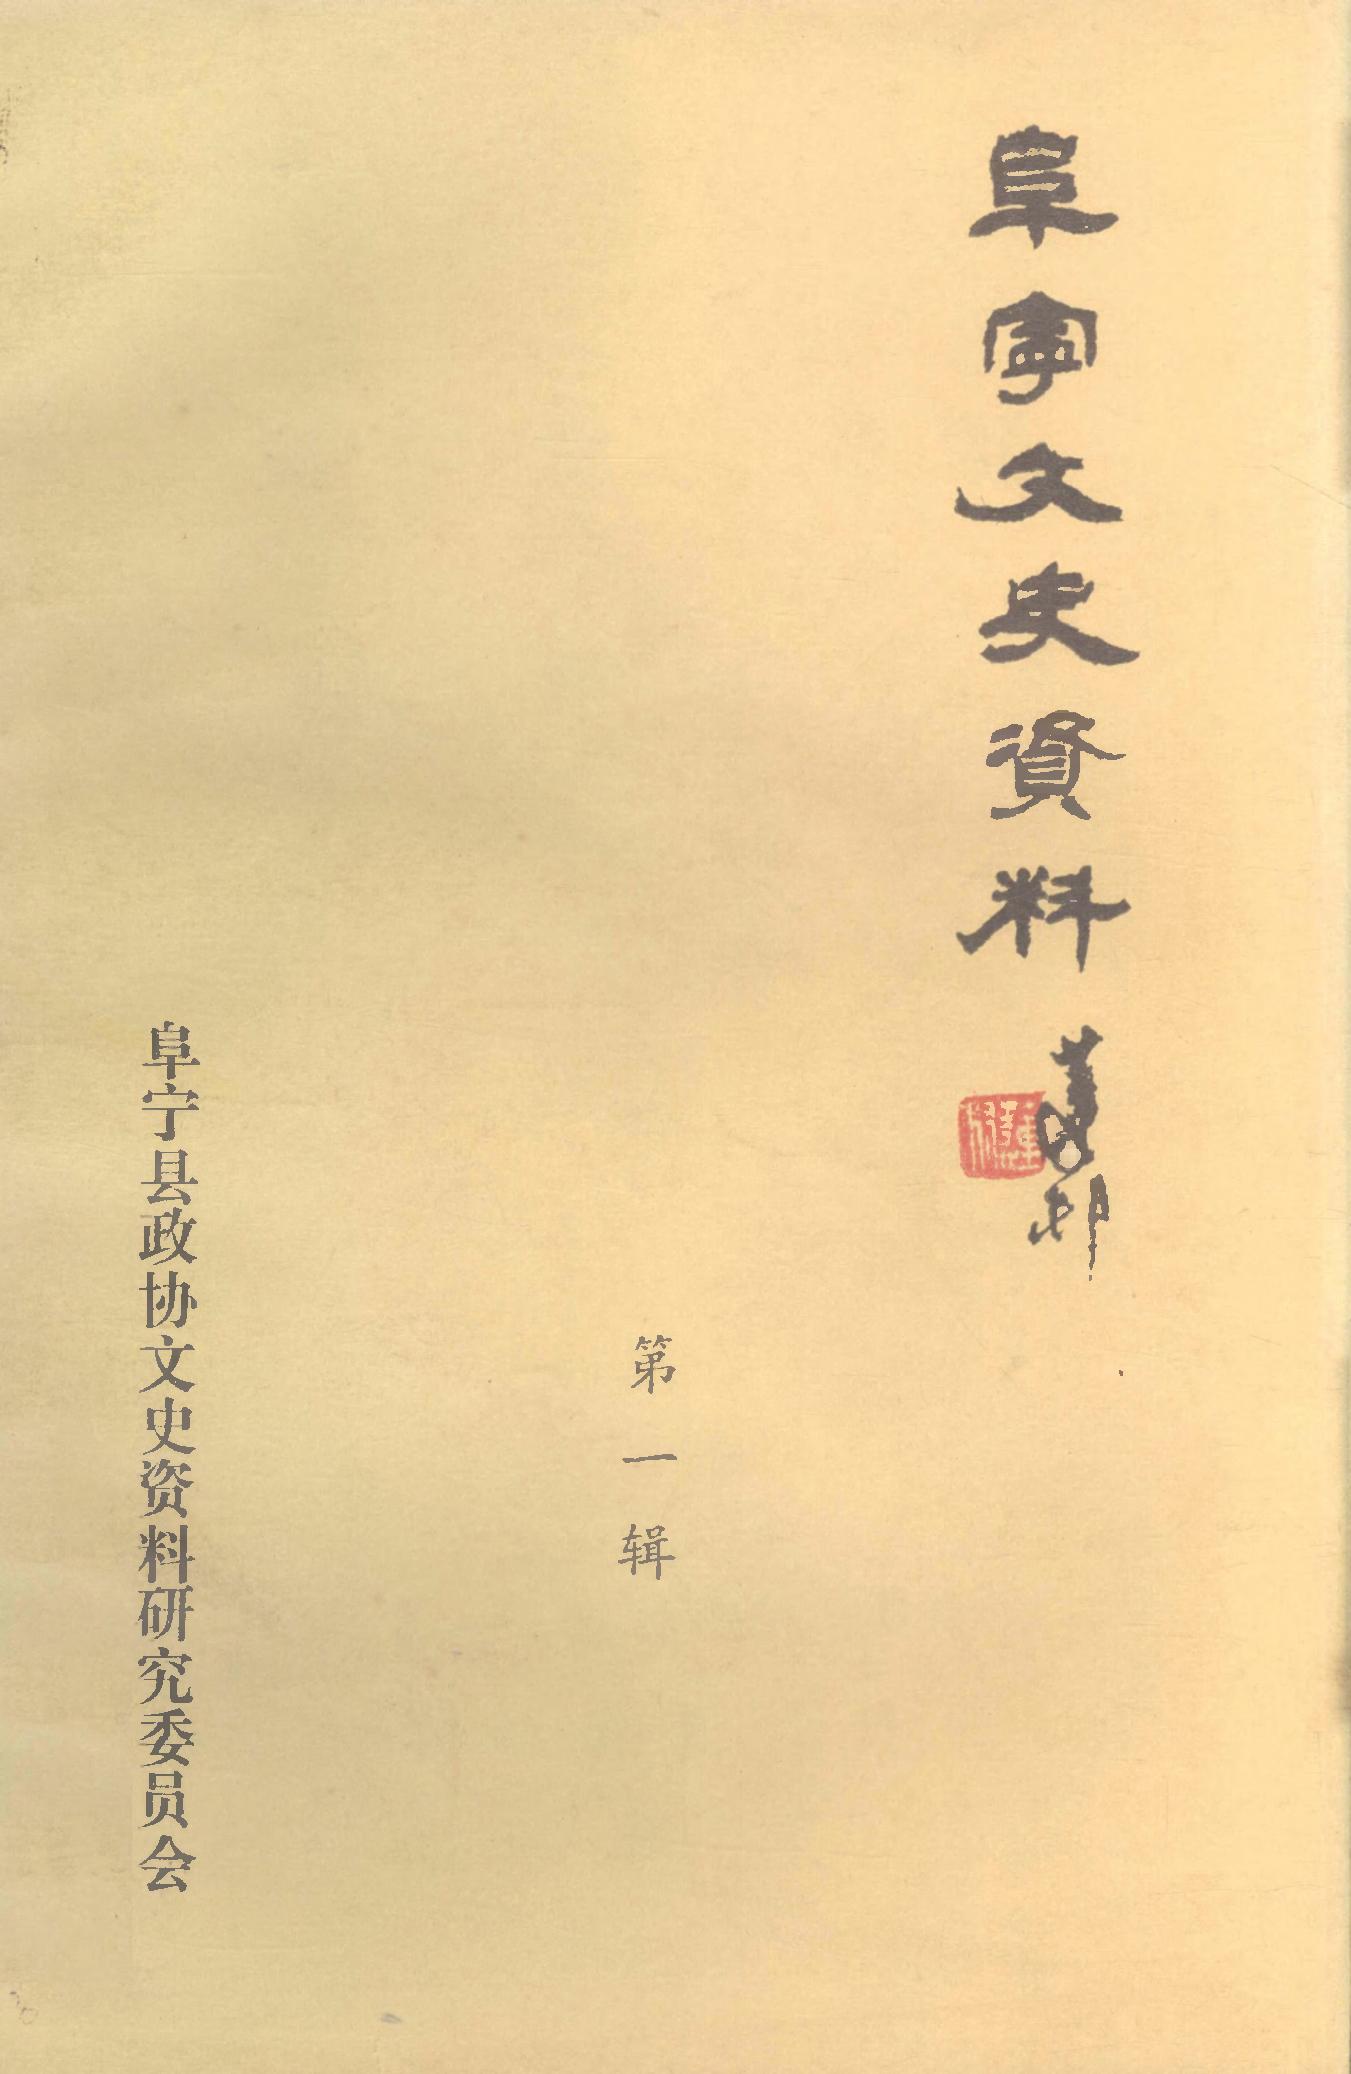 阜寧文史資料
第一辑
阜宁县政协文史资料研究委员会